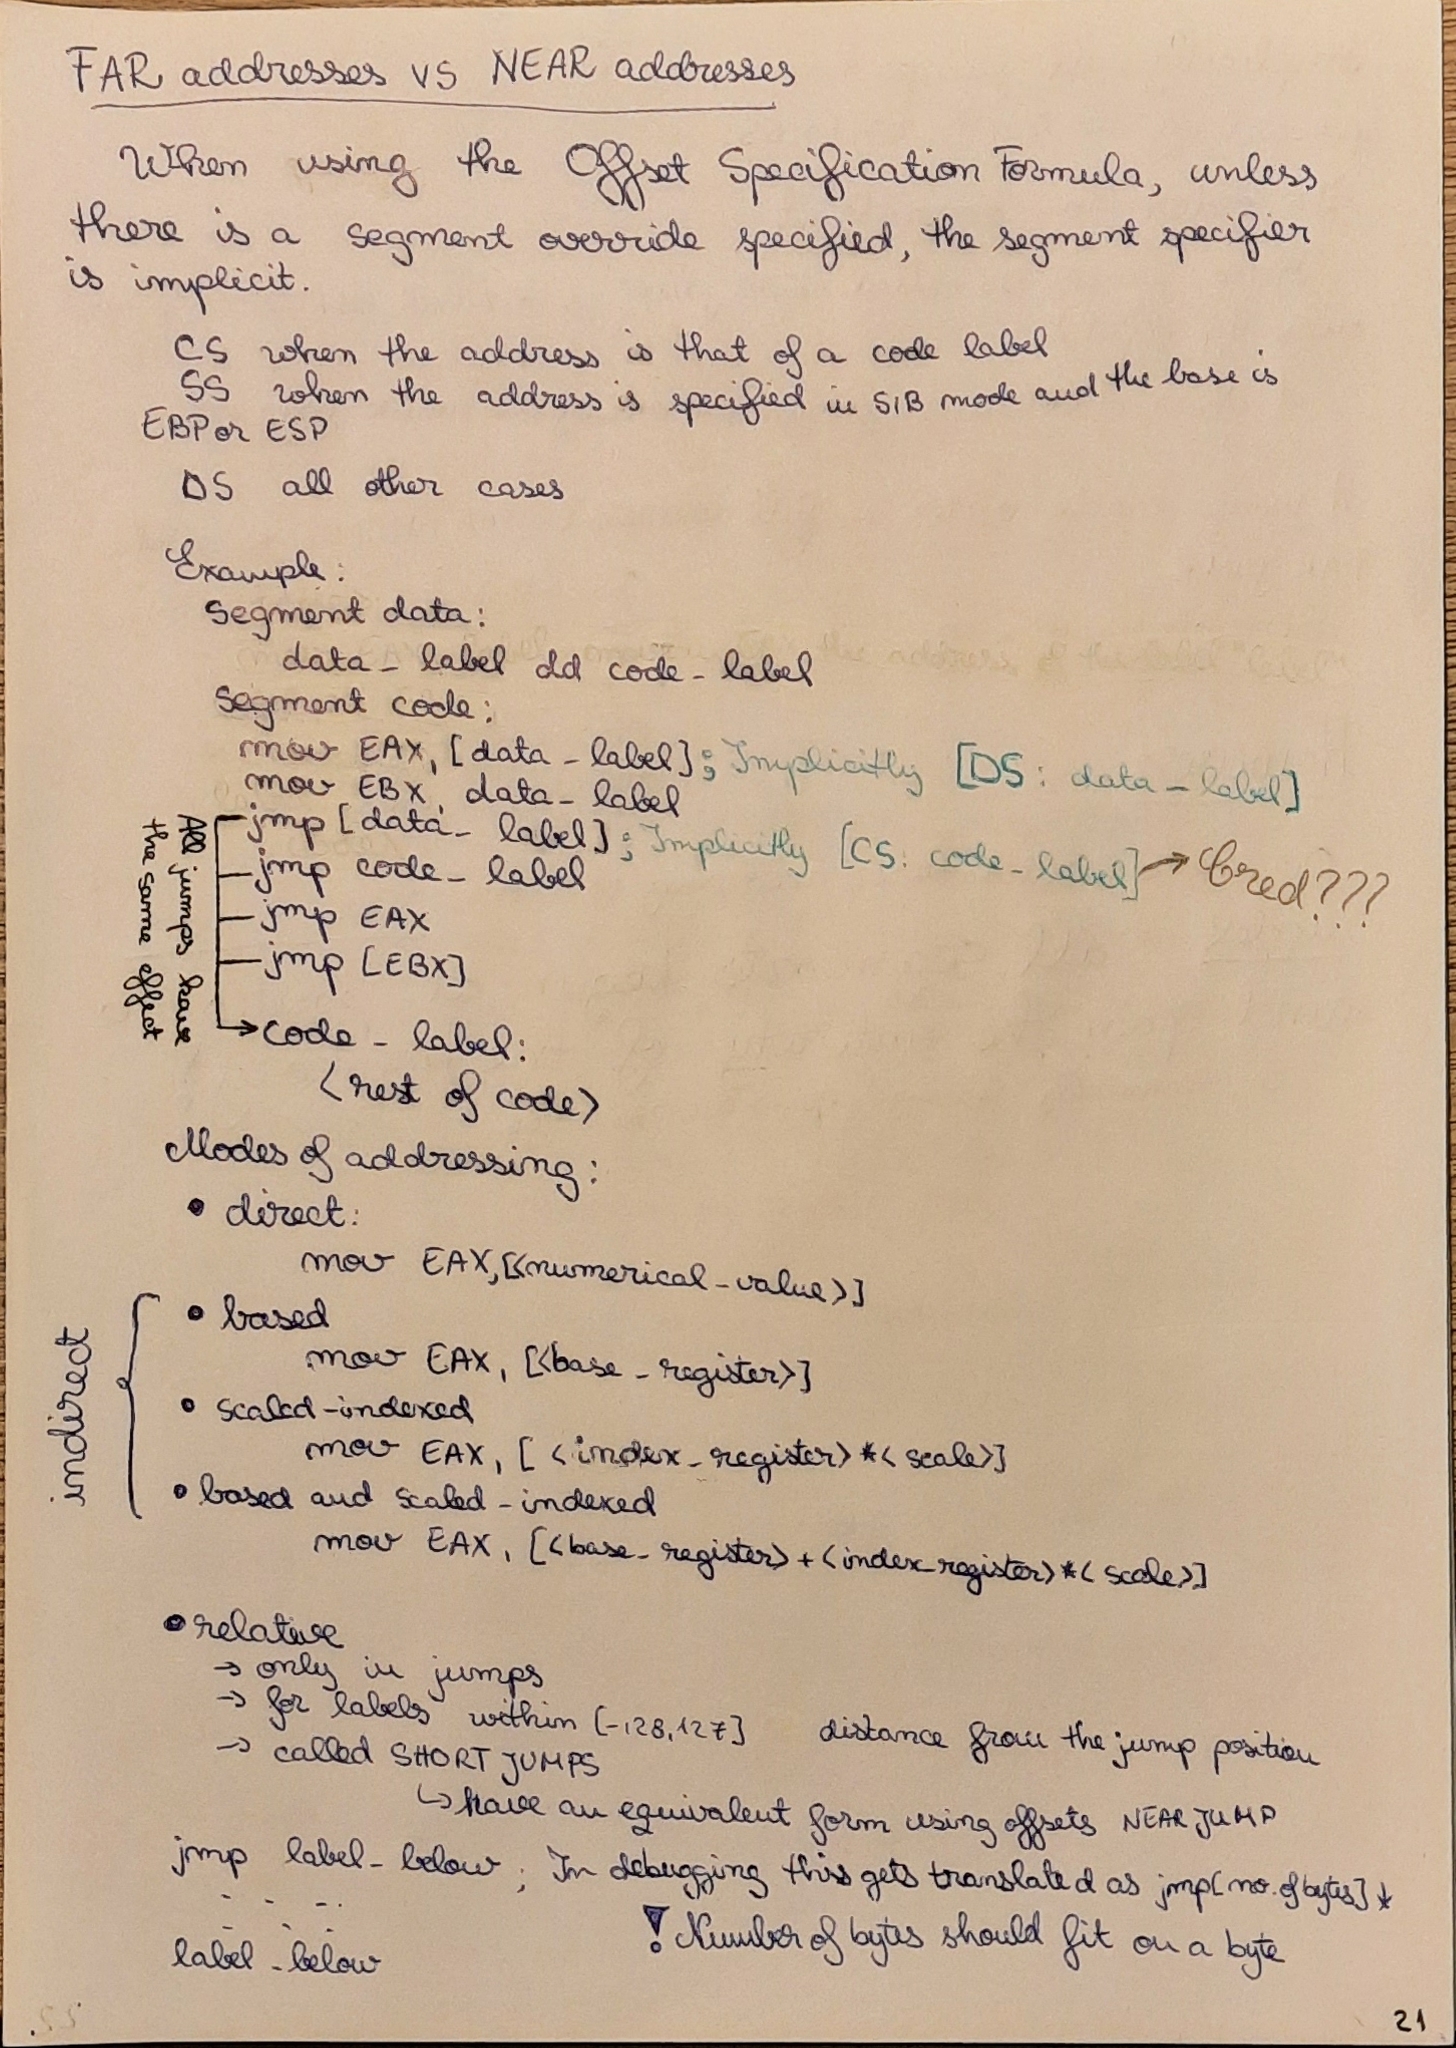 FAR addresses vs NEAR addresses
When using the Offset Specification Formula, unless
there is a segment override specified, the segment specifier
is implicit.
CS when the address is that of a code label
SS when the address is specified in SIB mode and the base is
EBP or ESP
DS all other cases
Example:
segment data:
data_label dd code_label
segment code:
mov EAX, [data_label] ; Implicitly [DS: data_label]
mov EBX, data_label
jmp [data_label] ; Implicitly [CS: code_label] → Cred???
jmp code_label
jmp EAX
jmp [EBX]
All jumps have
the same effect
code_label:
<rest of code>
Modes of addressing:
• direct:
mov EAX, [<numerical_value>]
indirect
• based
mov EAX, [<base_register>]
• scaled-indexed
mov EAX, [<index_register>*<scale>]
• based and scaled-indexed
mov EAX, [<base_register>+<index_register>*<scale>]
• relative
→ only in jumps
→ for labels within [-128,127] distance from the jump position
→ called SHORT JUMPS
↳ have an equivalent form using offsets NEAR JUMP
jmp label_below ; In debugging this gets translated as jmp [no. of bytes] ↓
- - - -
- - -
! Number of bytes should fit on a byte
label_below
21